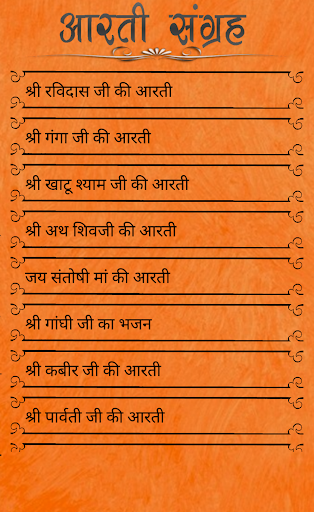 आरती संग्रह
श्री रविदास जी की आरती
श्री गंगा जी की आरती
श्री खाटू श्याम जी की आरती
श्री अथ शिवजी की आरती
जय संतोषी मां की आरती
श्री गांघी जी का भजन
श्री कबीर जी की आरती
श्री पार्वती जी की आरती